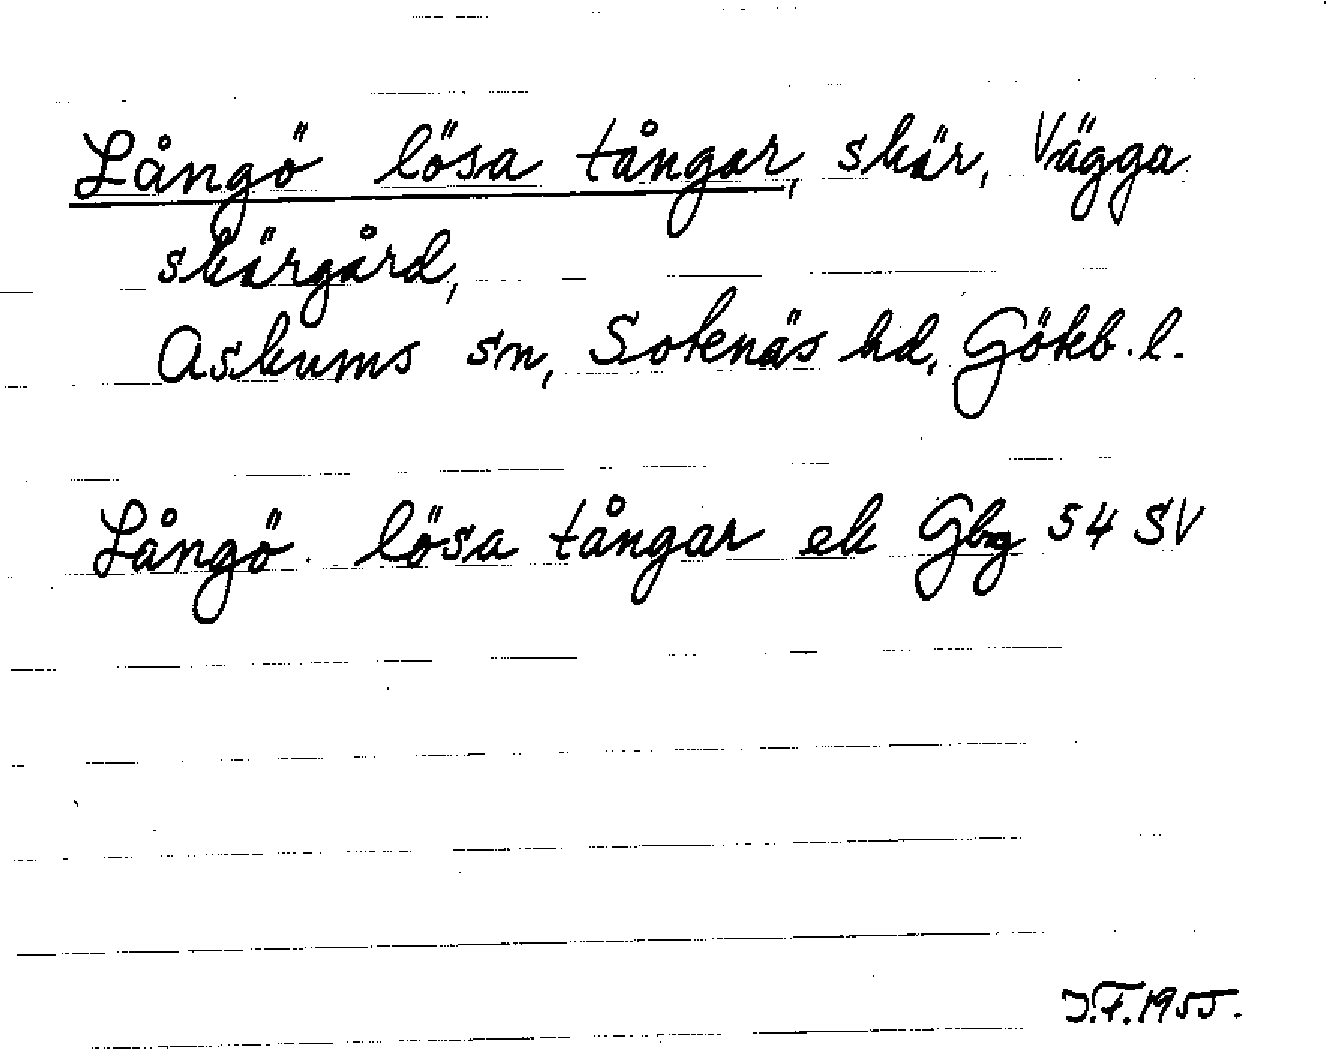 Långö lösa tångar, skär, Vägga
skärgård,
Askums sn, Sotenäs hd, Göteb.l.
Långö lösa tångar ek Gbg 54 SV
J.F.1955.